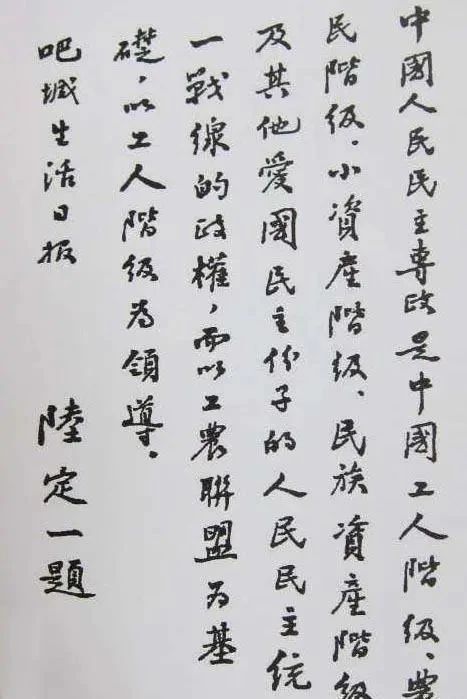 中國人民民主專政是中國工人階級、農
民階級、小資產階級、民族資產階級
及其他愛國民主份子的人民民主統
一戰線的政權，而以工農聯盟为基
礎，以工人階級为領導。
吧城生活日报
陸定一題